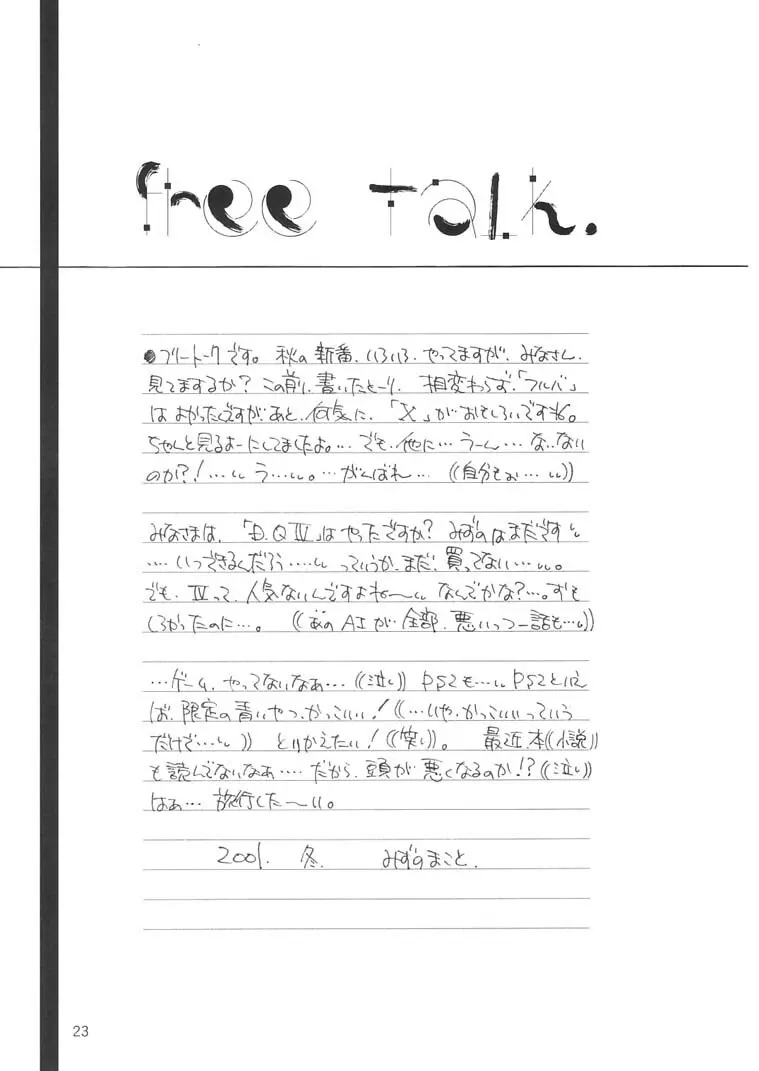 free talk.
●フリートークです。秋の新番、いろいろ、やってますが、みなさん、
見てまするか？この前に、書いたとーり、相変わらず、「フルバ」
はよかったんですが、あと、何気に、「X」がおもしろいですね。
ちゃんと見るよーにしてましたよ。… でも、他に… うーん… な、ない
のか？！…いう…い。… がんばれ… ((自分もぉ… い))
みなさまは、「D.Q Ⅳ」はやったですか？みずのはまだですい
…いつできるんだろう……い っていうか、まだ、買ってない…い。
でも、Ⅳって、人気ないんですよね〜い なんでかな？…。おも
しろかったのに…。 ((あのAIが、全部、悪いっつー話も…い))
…ゲーム、やってないなぁ… ((泣い)) PS2も…い PS2といえ
ば、限定の青いやつ、かっこいい！((…いや、かっこいいっていう
だけど…い)) とりかえたい！((笑い))。 最近、本((小説))
も読んでないなぁ…. だから、頭が悪くなるのか！？((泣い))
はぁ… 旅行した〜い。
2001. 冬. みずのまこと.
23